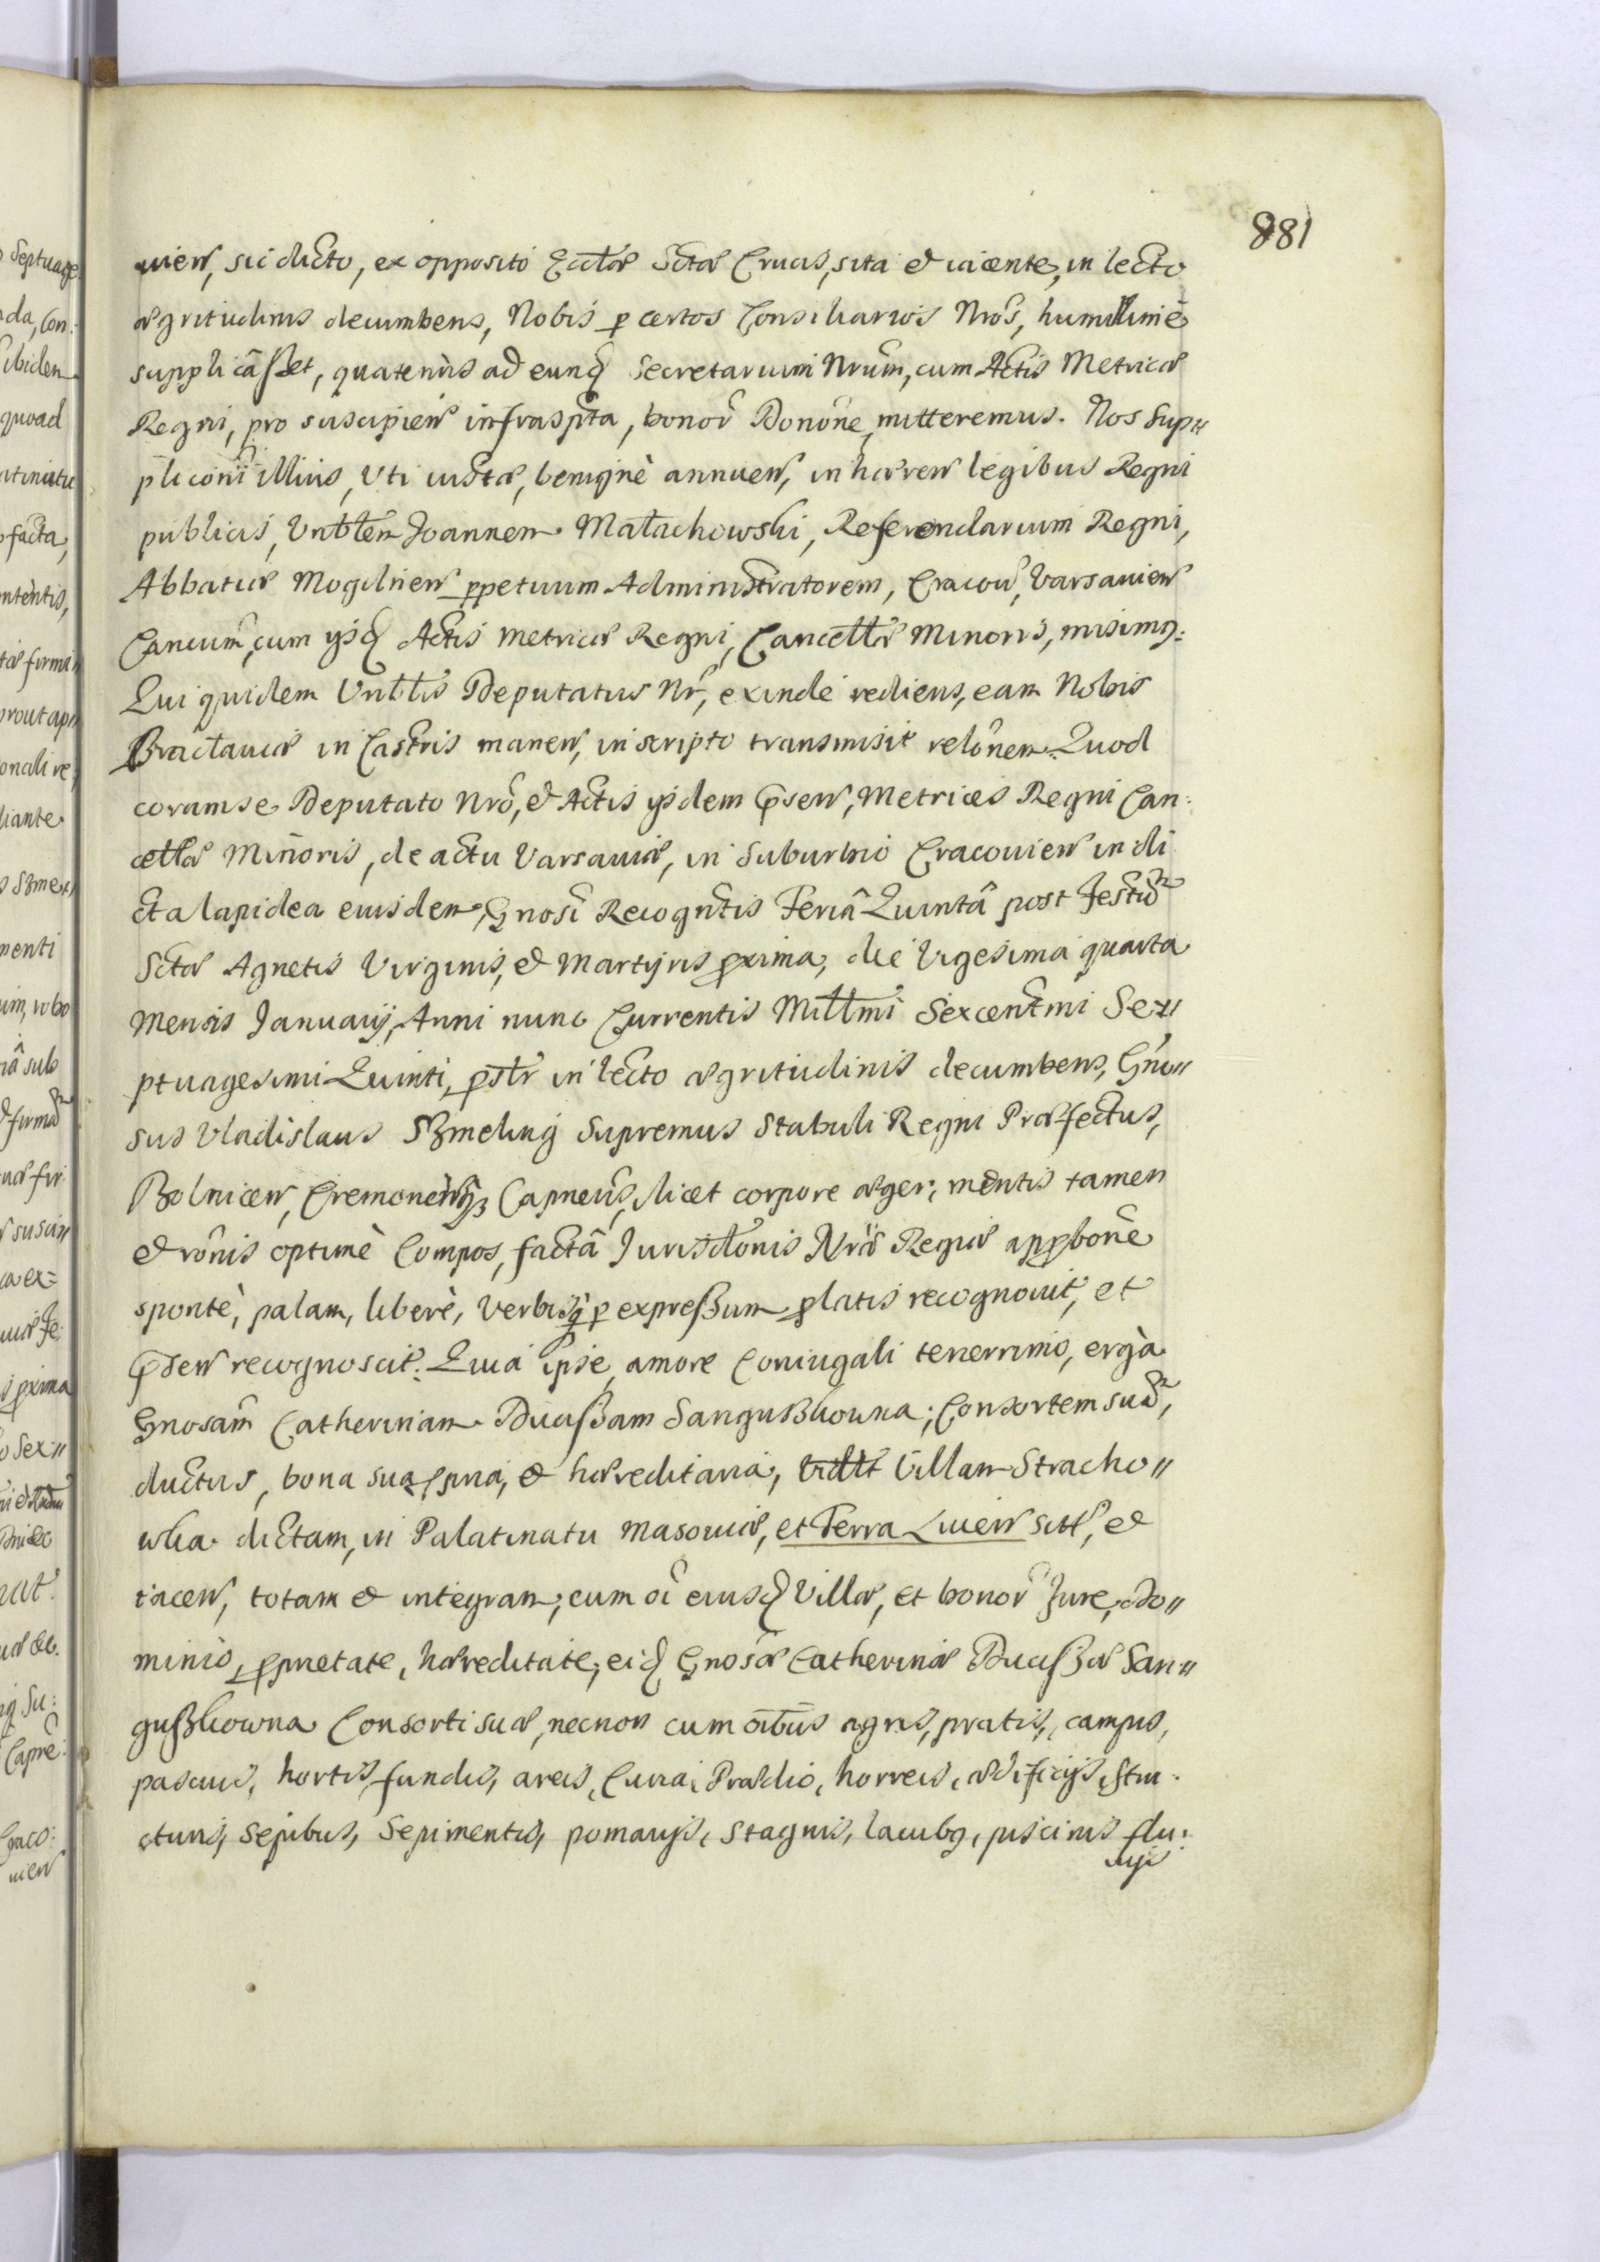 881
uień, sic dicto, ex opposito Ecclæ Sctæ Crucis, sita et iacente, in lecto
ægritudinis decumbens, Nobis p certos Consiliarios Nros, humillimè
supplicâsset, quatenùs ad eund Secretarium Nrum, cum Actis Metricæ
Regni, pro suscipien infraspta, bonor Donone, mitteremus. Nos Sup„
pliconi illius, Uti iustæ, benignè annuen, inhæren legibus Regni
publicis, Vnblem Joannem Małachowski, Referendarium Regni,
Abbatiæ Mogilnen ppetuum Administratorem, Cracou, Varsauien
Cancum, cum ijsd Actis Metricæ Regni, Cancellæ Minoris, misimq:
Qui quidem Vnblis Deputatus Nr, exinde rediens, eam Nobis
Bracłauiæ in Castris manen, in scripto transmisit relonem. Quod
coram se Deputato Nro, et Actis ijsdem Psen, Metrices Regni Can:
cellæ Minoris, de actu Varsauiæ, in Suburbio Cracouien in di
cta lapidea eiusdem, Gnosi Recogntis Feriâ Quintâ post Festu
Sctæ Agnetis Virginis, et Martyris pxima, die Vigesima quarta
Mensis Januarij, Anni nunc Currentis Millmi Sexcentmi Se„
ptuagesimi Quinti, pstr in lecto ægritudinis decumbens, Gno„
sus Vladislaus Szmeling Supremus Stabuli Regni Præfectus,
Bolnicen, Cremonenq Capneus, licet corpore æger, mentis tamen
et ronis optimè Compos, factâ Jurisdtonis Nræ Regiæ appbone
spontè, palam, liberè, Verbisq p expressum platis recognouit, et
Psen recognoscit. Quia ipse, amore Coniugali tenerrimo, ergà
Gnosam Catherinam Ducissam Sanguszkowna, Consortem sua,
ductus, bona sua ppria, et hæreditaria, Villam Stracho„
wka dictam, in Palatinatu Masouiæ, et Terra Liuen sitt, et
iacen, totam et integram, cum oi eiusd Villæ, et bonor Jure, do„
minio, pprietate, hæreditate, eid Gnosæ Catherinæ Ducissæ San„
guszkowna Consorti suæ, necnon cum oibus agris, pratis, campis,
pascuis, hortis, fundis, areis, Curia, Prædio, horreis, ædificijs, stru:
cturis, sepibus, sepimentis, pomarijs, stagnis, lacubq, piscinis flu:
uijs